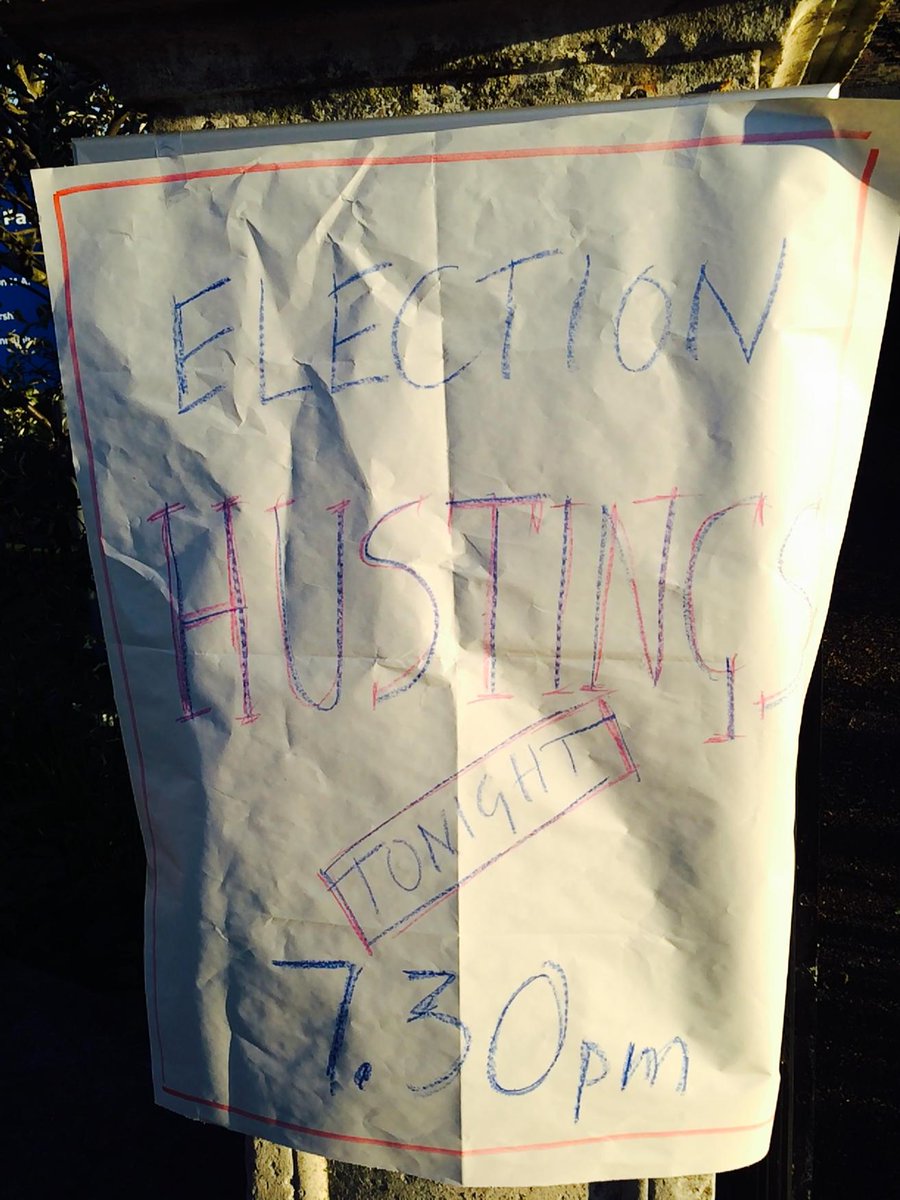 ELECTION
HUSTINGS
TONIGHT
7.30pm